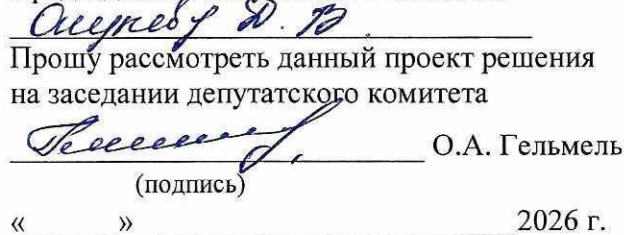 Д. В.
Прошу рассмотреть данный проект решения
на заседании депутатского комитета
О.А. Гельмель
(подпись)
« » 2026 г.